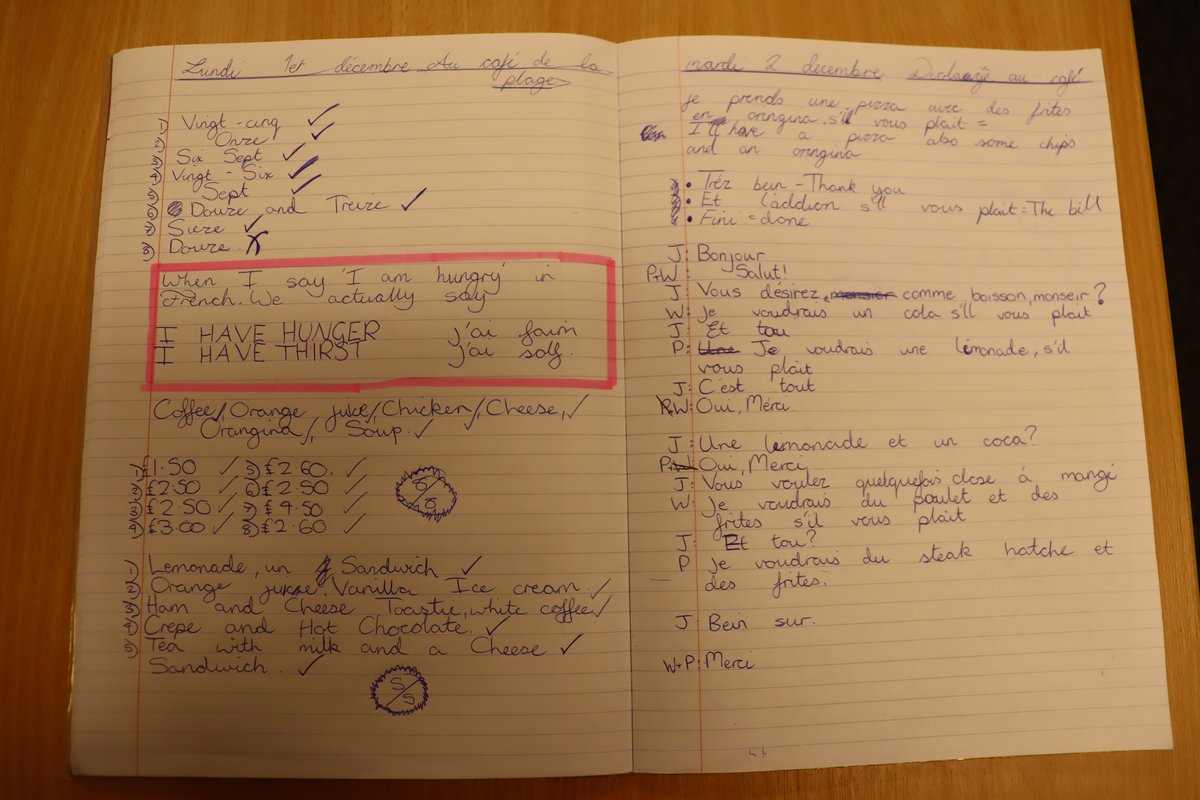 Lundi 1et décembre Au café de la
plage
1) Vingt-cinq ✓
2) Onze ✓
3) Six Sept ✓
4) Vingt-Six ✓
5) Sept ✓
6) Douze and Treize ✓
7) Sieze ✓
8) Douze. X
When I say 'I am hungry' in
French. We actually say
I HAVE HUNGER j'ai faim
I HAVE THIRST j'ai soif.
Coffee, Orange juice, Chicken, Cheese, ✓
Orangina, Soup. ✓
1) £1.50 ✓ 5) £2.60. ✓
2) £2.50 ✓ 6) £2.50 ✓
3) £2.50 ✓ 7) £4.50 ✓
4) £3.00 ✓ 8) £2.60 ✓
8/8
1) Lemonade, un Sandwich ✓
2) Orange juice, Vanilla Ice cream. ✓
3) Ham and Cheese Toastie, white coffee ✓
4) Crepe and Hot Chocolate. ✓
5) Tea with milk and a Cheese ✓
Sandwich. ✓
5/5
mardi 2 decembre Dialoage au café
je prends une pizza avec des frites
en oringina, s'il vous plait =
I'll have a pizza also some chips
and an oringina
• Tréz bein - Thank you
• Et láddion s'll vous plait = The bill
• Fini = done
J: Bonjour
P+W: Salut!
J: Vous désirez, comme boisson, monseir?
W: Je voudrais un cola s'll vous plait
J: Et tou
P: Je voudrais une lémonade, s'il
vous plait
J: C'est tout
P+W: Oui, Mérci.
J: Une lemonade et un coca?
P: Oui, Merci
J: Vous voulez quelquefois close á mangé
W: Je voudrais du poulet et des
frites s'il vous plait
J: Et tou?
P Je voudrais du steak hatche et
des frites.
J: Bein sur.
W+P: Merci